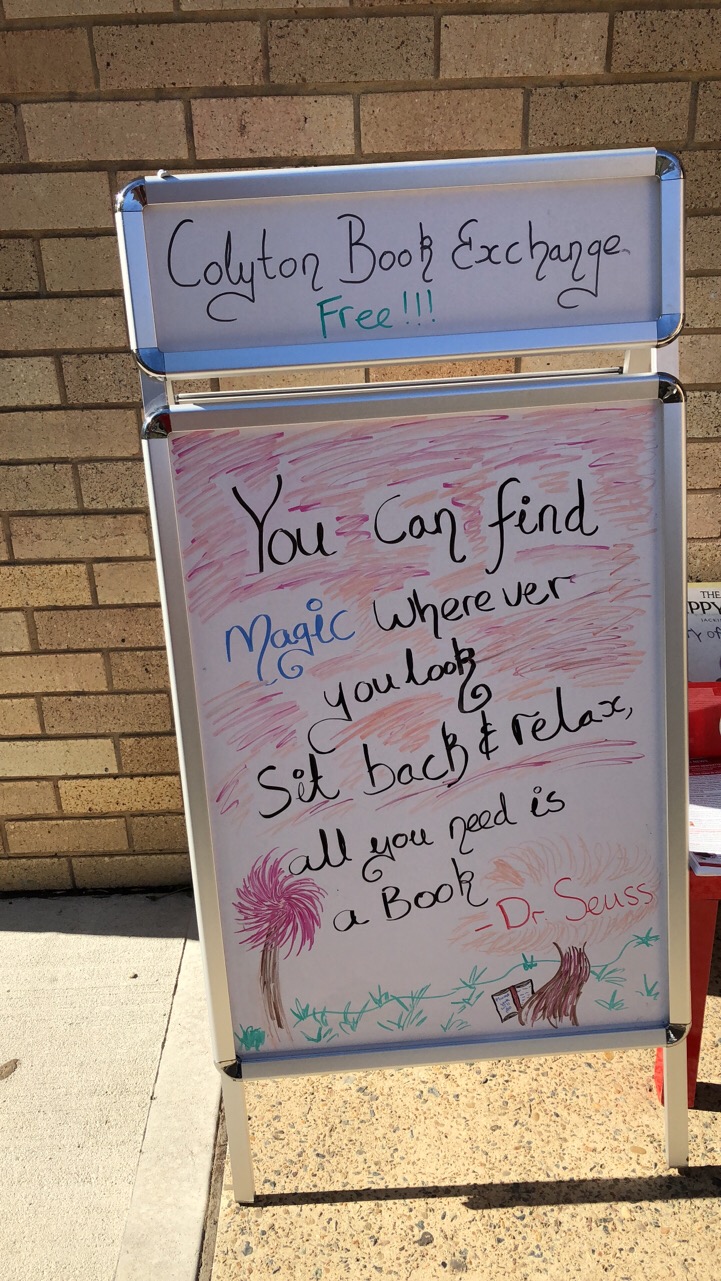 Colyton Book Exchange.
Free!!!
You can find
Magic wherever
you look
Sit back & relax,
all you need is
a Book
- Dr. Seuss
THE
PPY